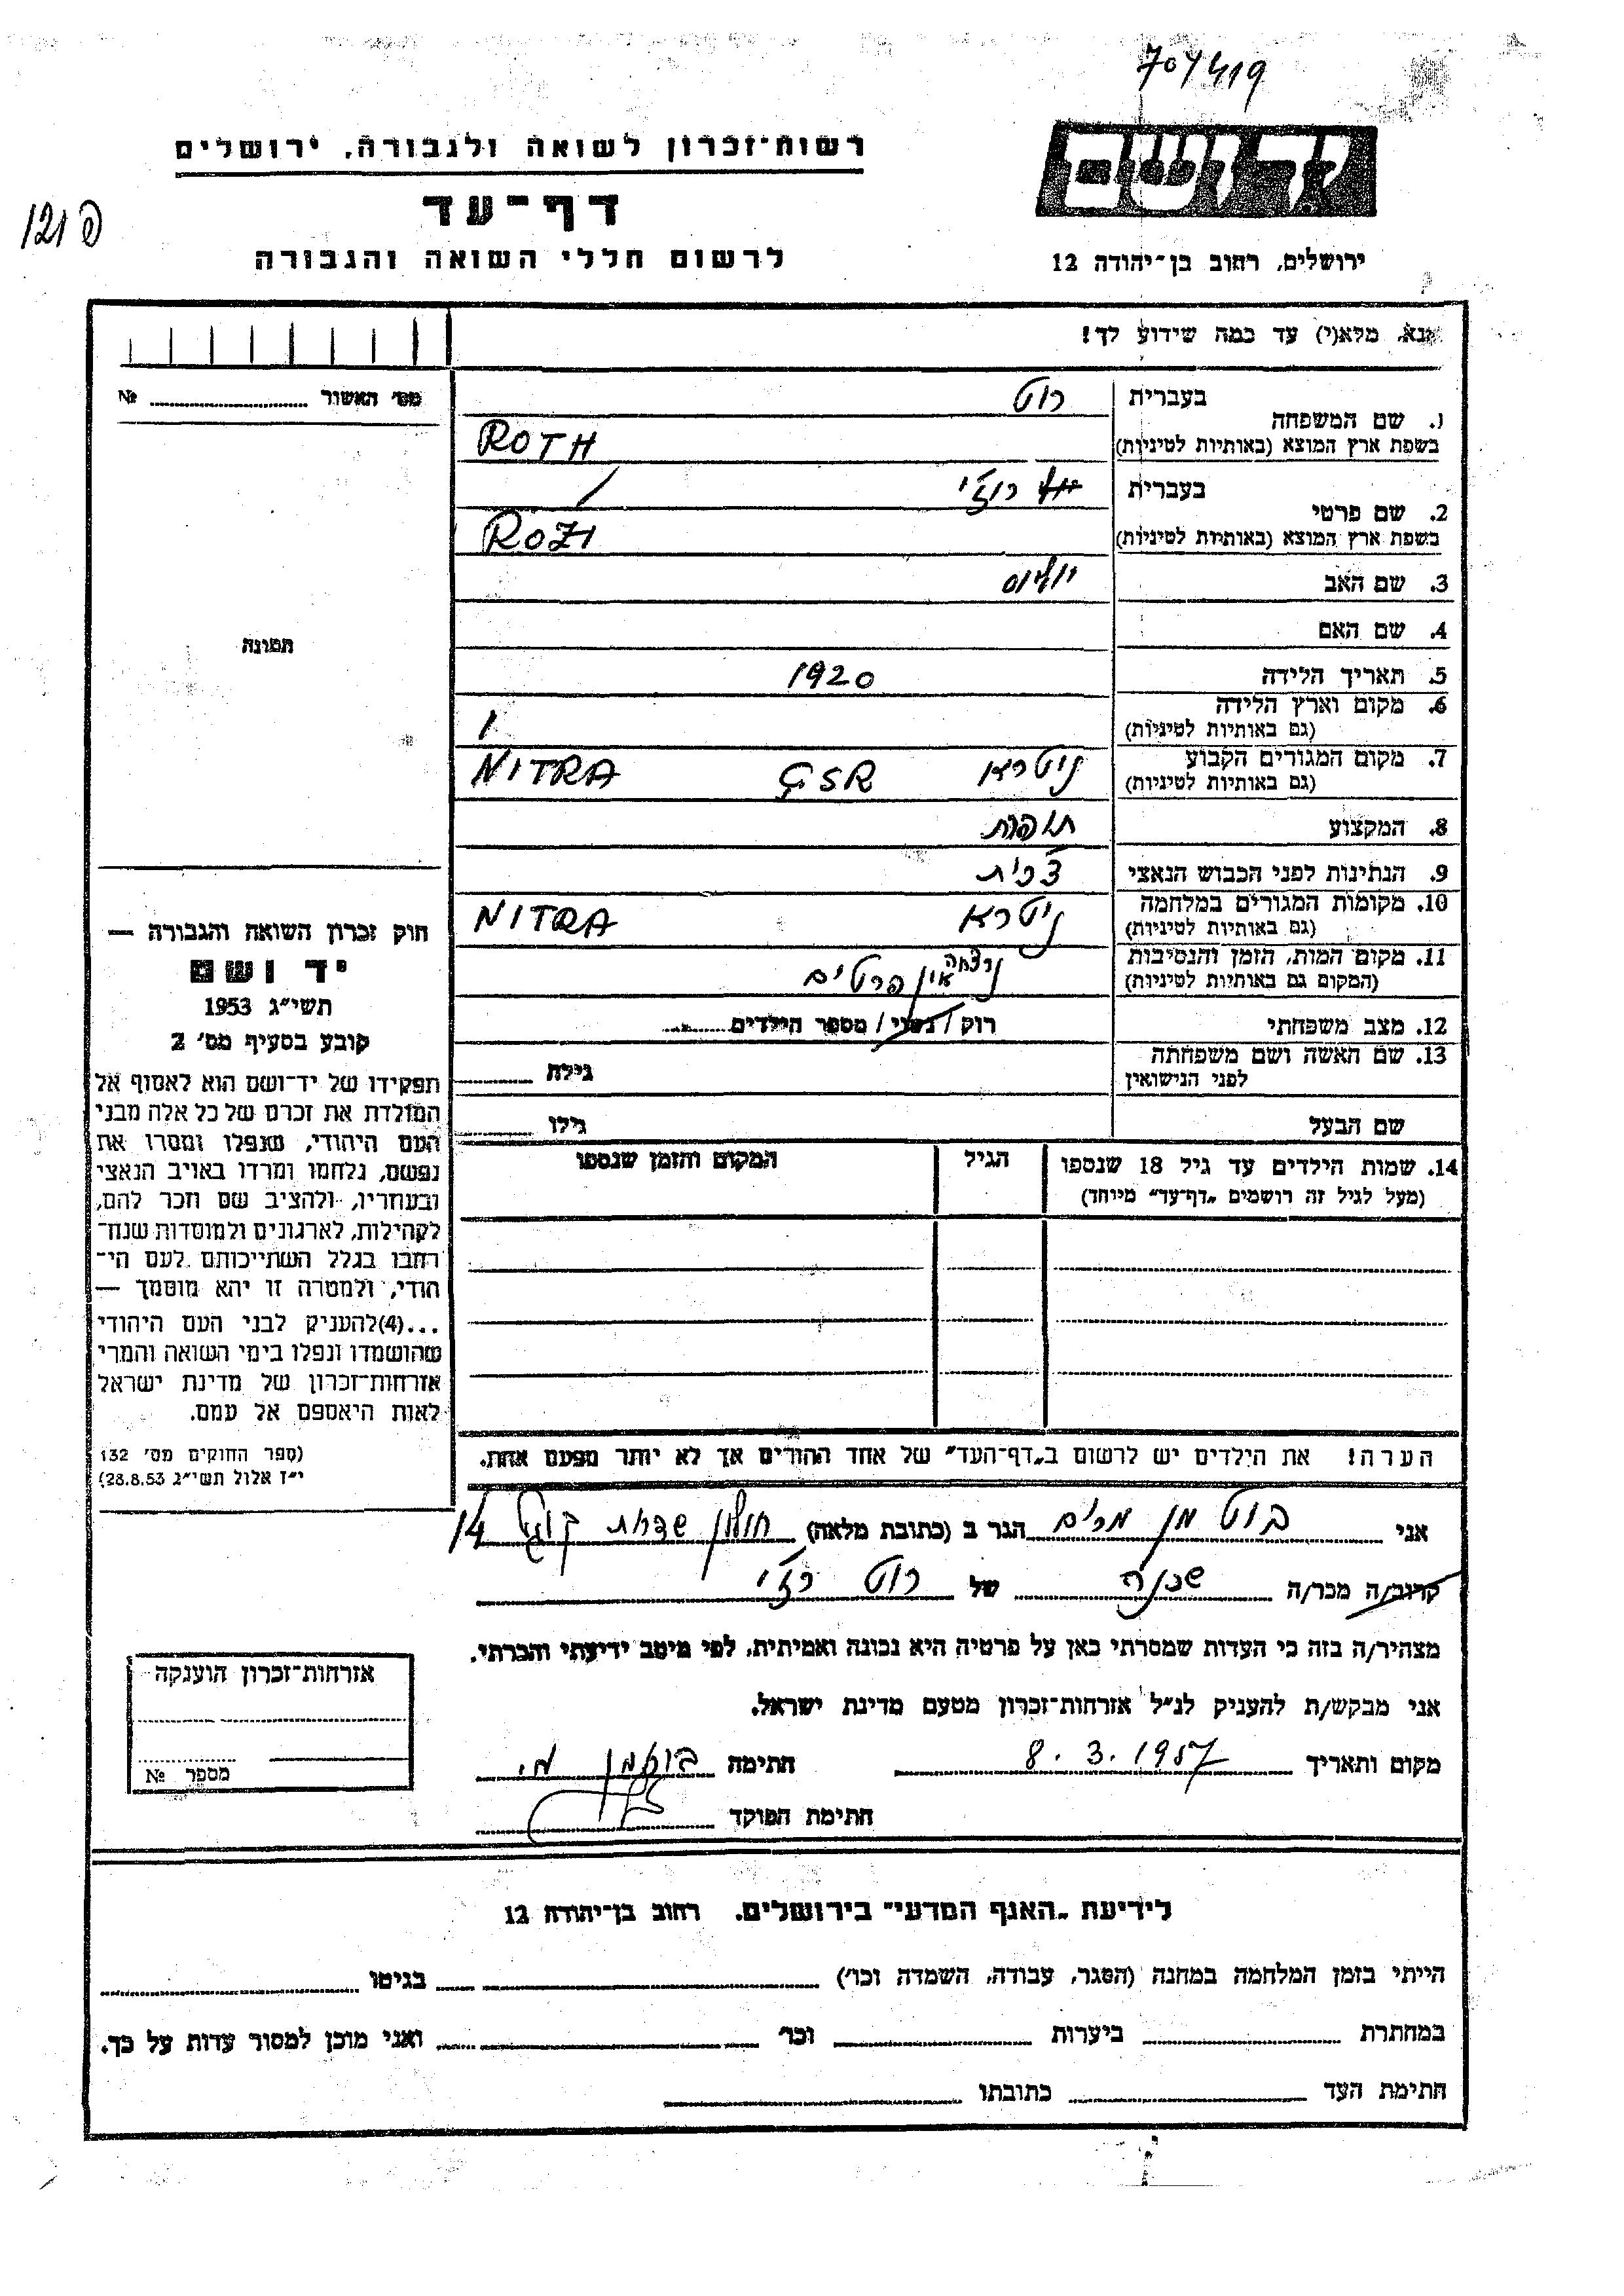 704419
רשות-זכרון לשואה ולגבורה, ירושלים
דף-עד
לרשום חללי השואה והגבורה
ירושלים, רחוב בן-יהודה 12
נא, מלא(י) עד כמה שידוע לך!
מס' האשור № 
1. שם המשפחה
בעברית רוט
בשפת ארץ המוצא (באותיות לטיניות) ROTH
2. שם פרטי
בעברית רוז'י
בשפת ארץ המוצא (באותיות לטיניות) ROZI
3. שם האב יוליוס
4. שם האם
תמונה
5. תאריך הלידה 1920
6. מקום וארץ הלידה
(גם באותיות לטיניות)
7. מקום המגורים הקבוע ניטרא ČSR NITRA
(גם באותיות לטיניות)
8. המקצוע תופרת
9. הנתינות לפני הכבוש הנאצי צ'כית
10. מקומות המגורים במלחמה ניטרא NITRA
(גם באותיות לטיניות)
11. מקום המות, הזמן והנסיבות נרצחה אין פרטים
(המקום גם באותיות לטיניות)
12. מצב משפחתי רוק / נשוי / מספר הילדים
13. שם האשה ושם משפחתה גילה
לפני הנישואין
שם הבעל גילו
14. שמות הילדים עד גיל 18 שנספו הגיל המקום והזמן שנספו
(מעל לגיל זה רושמים „דף-עד" מיוחד)
חוק זכרון השואה והגבורה —
יד ושם
תשי"ג 1953
קובע בסעיף מס' 2
תפקידו של יד-ושם הוא לאסוף אל
המולדת את זכרם של כל אלה מבני
העם היהודי, שנפלו ומסרו את
נפשם, נלחמו ומרדו באויב הנאצי
ובעוזריו, ולהציב שם וזכר להם,
לקהילות, לארגונים ולמוסדות שנח-
רבו בגלל השתייכותם לעם הי-
הודי, ולמטרה זו יהא מוסמך —
...(4)להעניק לבני העם היהודי
שהושמדו ונפלו בימי השואה והמרי
אזרחות-זכרון של מדינת ישראל
לאות היאספם אל עמם.
(ספר החוקים מס' 132
י"ז אלול תשי"ג 28.8.53)
הערה! את הילדים יש לרשום ב„דף-העד" של אחד ההורים אך לא יותר מפעם אחת.
אני מרים הגר ב (כתובת מלאה) חולון שדרות 14
קרוב/ה מכר/ה שכנה של רוט רז'י
מצהיר/ה בזה כי העדות שמסרתי כאן על פרטיה היא נכונה ואמיתית, לפי מיטב ידיעתי והכרתי.
אני מבקש/ת להעניק לנ"ל אזרחות-זכרון מטעם מדינת ישראל.
מקום ותאריך 8.3.1957 חתימה
חתימת הפוקד
אזרחות-זכרון הוענקה
מספר №
לידיעת „האגף המדעי" בירושלים, רחוב בן-יהודה 12
הייתי בזמן המלחמה במחנה (הסגר, עבודה, השמדה וכו') בגיטו
במחתרת ביערות וכו' ואני מוכן למסור עדות על כך.
חתימת העד כתובתו